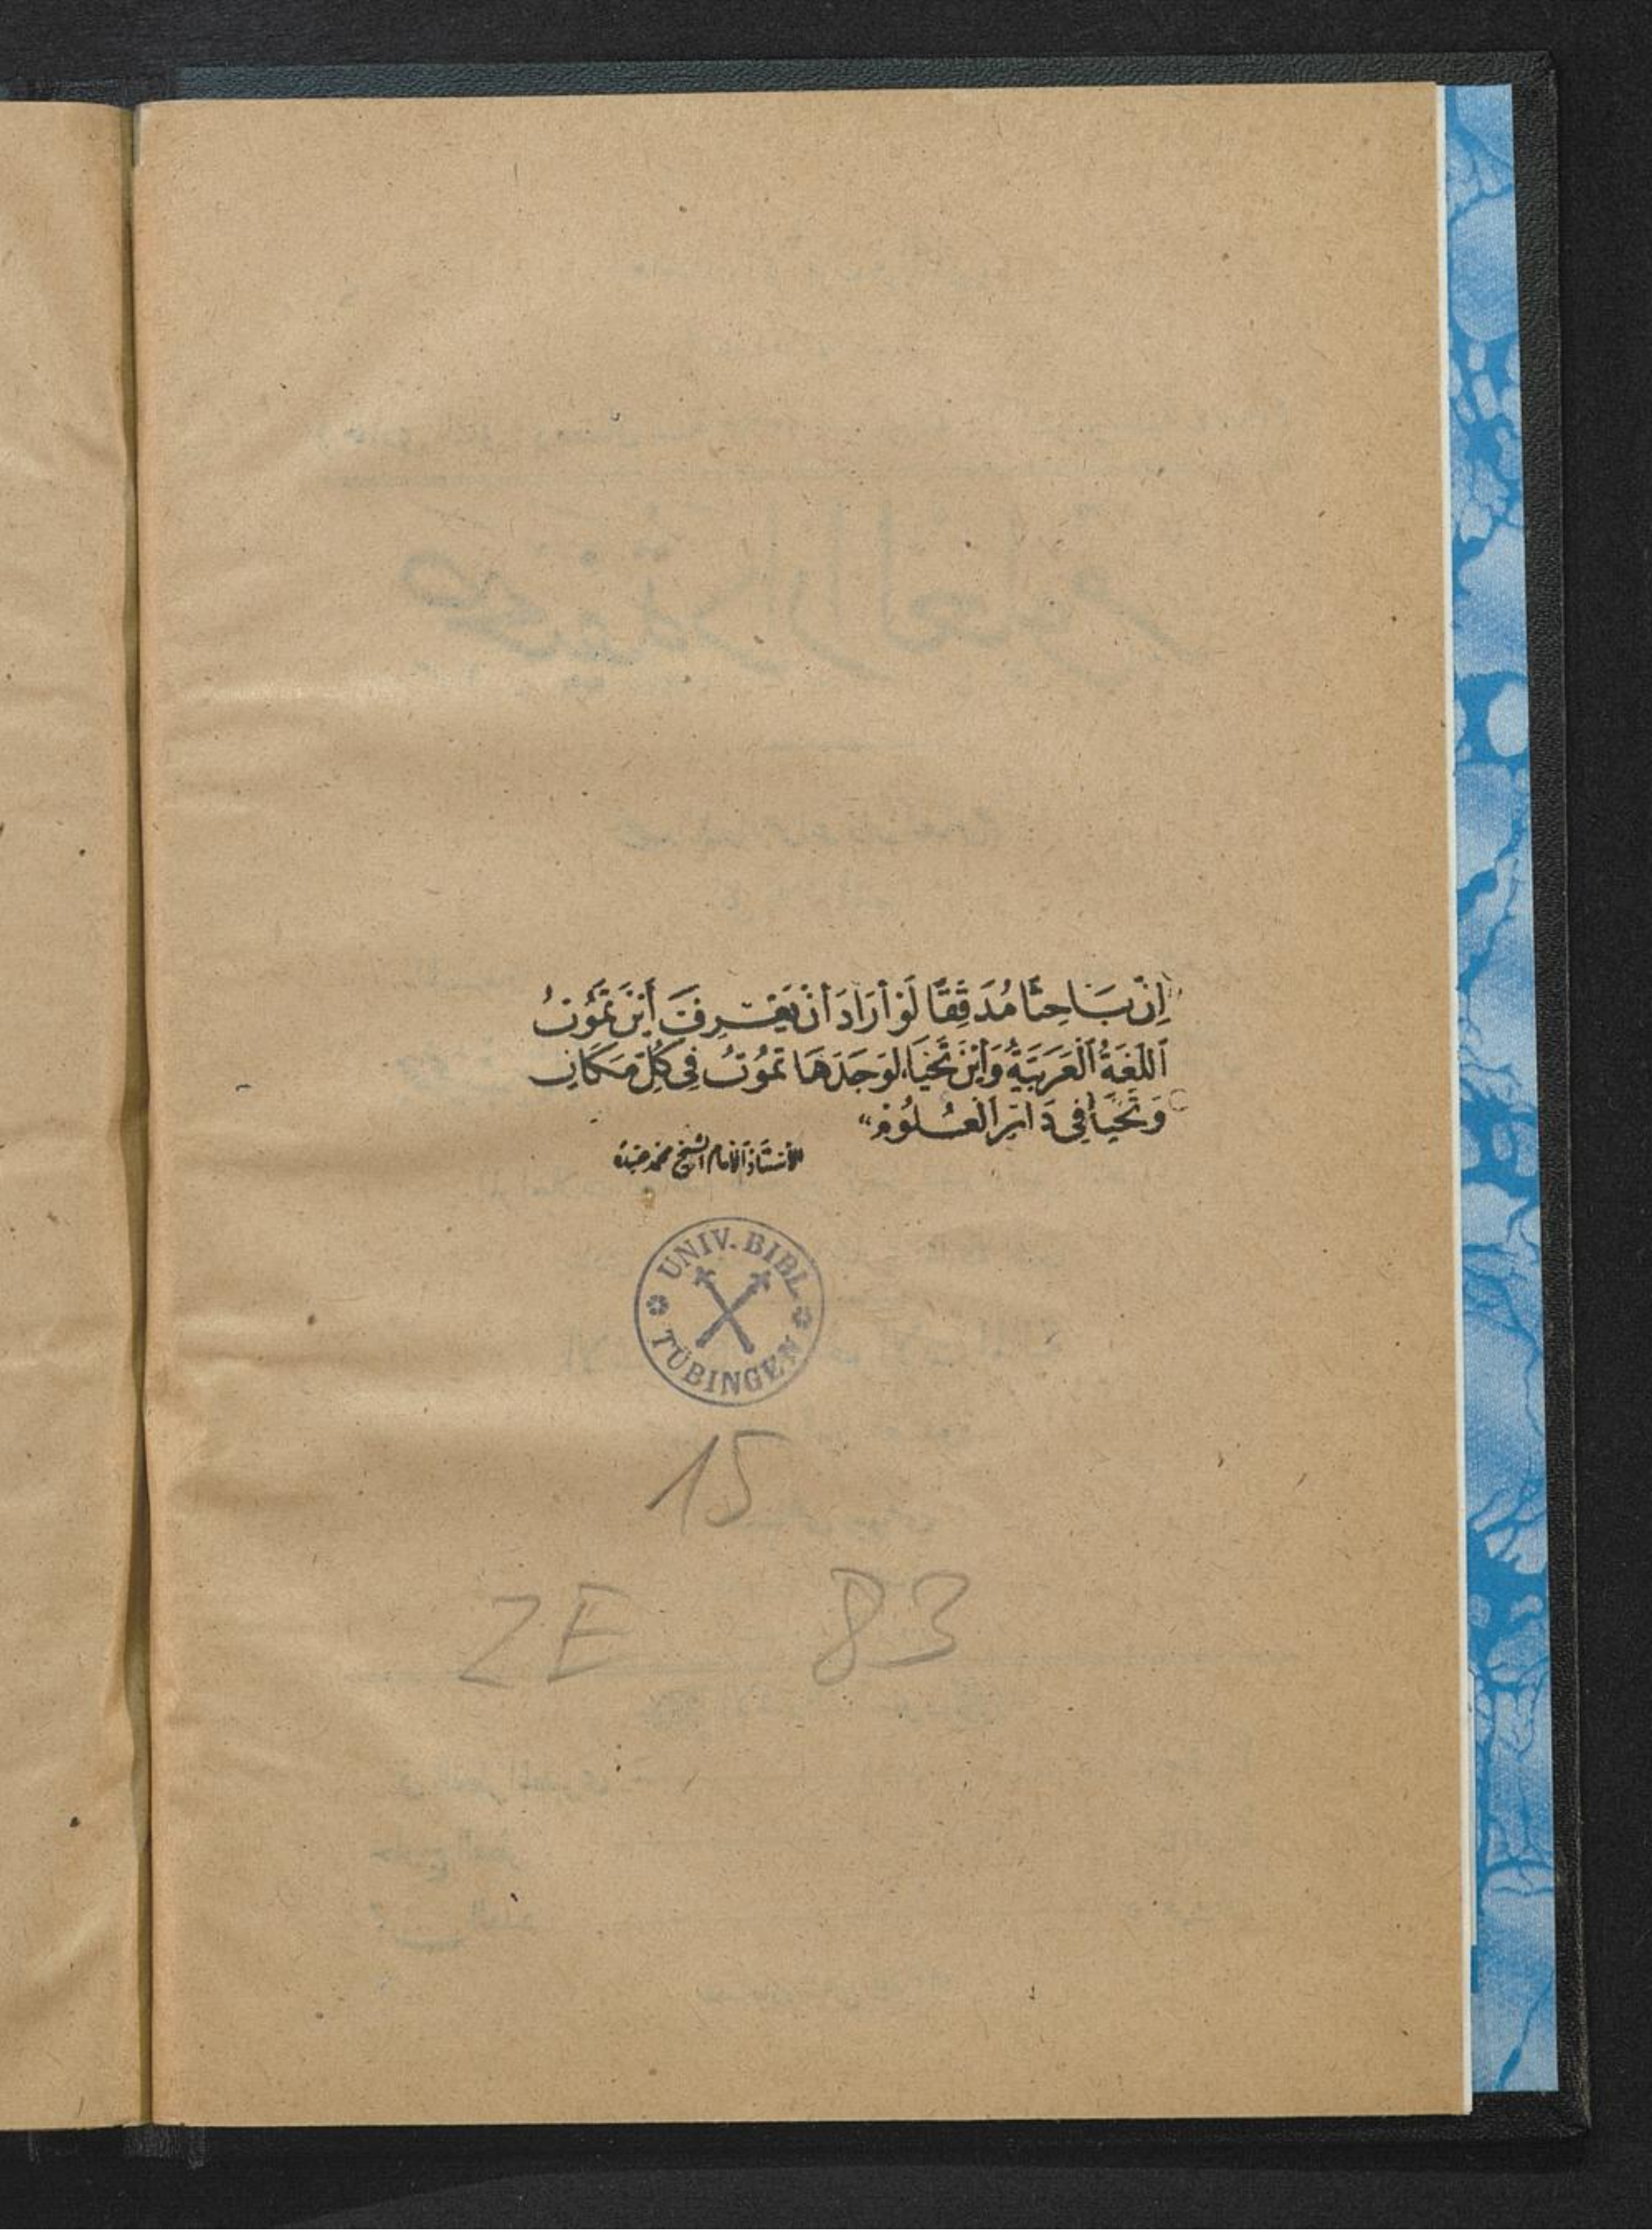 "إِنَّ بَاحِثًا مُدَقِّقًا لَوْ أَرَادَ أَنْ يَعْرِفَ أَيْنَ تَمُوتُ
اَللُّغَةُ الْعَرَبِيَّةُ وَأَيْنَ تَحْيَا، لَوَجَدَهَا تَمُوتُ فِي كُلِّ مَكَانٍ
وَتَحْيَا فِي دَارِ الْعُلُومِ"
للأستاذ الإمام الشيخ محمد عبده
UNIV. BIBL.
TÜBINGEN
15
ZE 83